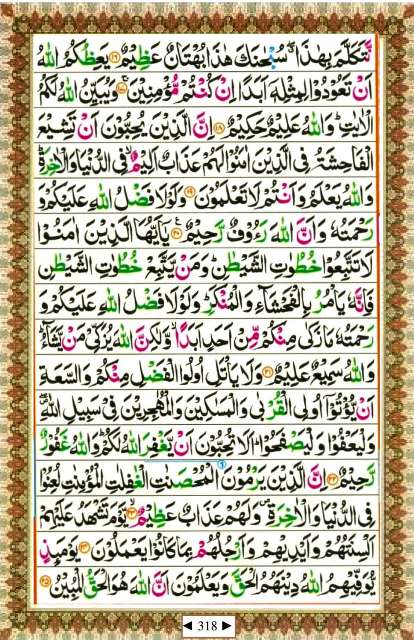 نَّتَكَلَّمَ بِهٰذَا ۖ سُبْحٰنَكَ هٰذَا بُهْتَانٌ عَظِيْمٌ ﴿۱۶﴾ يَعِظُكُمُ اللّٰهُ
اَنْ تَعُوْدُوْا لِمِثْلِهٖۤ اَبَدًا اِنْ كُنْتُمْ مُّؤْمِنِيْنَ ﴿۱۷﴾ وَيُبَيِّنُ اللّٰهُ لَكُمُ
الْاٰيٰتِ ؕ وَاللّٰهُ عَلِيْمٌ حَكِيْمٌ ﴿۱۸﴾ اِنَّ الَّذِيْنَ يُحِبُّوْنَ اَنْ تَشِيْعَ
الْفَاحِشَةُ فِى الَّذِيْنَ اٰمَنُوْا لَهُمْ عَذَابٌ اَلِيْمٌ ۙ فِى الدُّنْيَا وَالْاٰخِرَةِ ؕ
وَاللّٰهُ يَعْلَمُ وَاَنْتُمْ لَا تَعْلَمُوْنَ ﴿۱۹﴾ وَلَوْلَا فَضْلُ اللّٰهِ عَلَيْكُمْ وَ
رَحْمَتُهٗ وَاَنَّ اللّٰهَ رَءُوْفٌ رَّحِيْمٌ ﴿۲۰﴾ يٰۤاَيُّهَا الَّذِيْنَ اٰمَنُوْا
لَا تَتَّبِعُوْا خُطُوٰتِ الشَّيْطٰنِ ؕ وَمَنْ يَّتَّبِعْ خُطُوٰتِ الشَّيْطٰنِ
فَاِنَّهٗ يَاْمُرُ بِالْفَحْشَآءِ وَالْمُنْكَرِ ؕ وَلَوْلَا فَضْلُ اللّٰهِ عَلَيْكُمْ وَ
رَحْمَتُهٗ مَا زَكٰى مِنْكُمْ مِّنْ اَحَدٍ اَبَدًا ۙ وَّلٰكِنَّ اللّٰهَ يُزَكِّىْ مَنْ يَّشَآءُ ؕ
وَاللّٰهُ سَمِيْعٌ عَلِيْمٌ ﴿۲۱﴾ وَلَا يَاْتَلِ اُولُوا الْفَضْلِ مِنْكُمْ وَالسَّعَةِ
اَنْ يُّؤْتُوْۤا اُولِى الْقُرْبٰى وَالْمَسٰكِيْنَ وَالْمُهٰجِرِيْنَ فِىْ سَبِيْلِ اللّٰهِ ۖ
وَلْيَعْفُوْا وَلْيَصْفَحُوْا ؕ اَلَا تُحِبُّوْنَ اَنْ يَّغْفِرَ اللّٰهُ لَكُمْ ؕ وَاللّٰهُ غَفُوْرٌ
رَّحِيْمٌ ﴿۲۲﴾ اِنَّ الَّذِيْنَ يَرْمُوْنَ الْمُحْصَنٰتِ الْغٰفِلٰتِ الْمُؤْمِنٰتِ لُعِنُوْا
فِى الدُّنْيَا وَالْاٰخِرَةِ ۪ وَلَهُمْ عَذَابٌ عَظِيْمٌ ﴿۲۳﴾ يَّوْمَ تَشْهَدُ عَلَيْهِمْ
اَلْسِنَتُهُمْ وَاَيْدِيْهِمْ وَاَرْجُلُهُمْ بِمَا كَانُوْا يَعْمَلُوْنَ ﴿۲۴﴾ يَوْمَئِذٍ
يُّوَفِّيْهِمُ اللّٰهُ دِيْنَهُمُ الْحَقَّ وَيَعْلَمُوْنَ اَنَّ اللّٰهَ هُوَ الْحَقُّ الْمُبِيْنُ ﴿۲۵﴾
◄ 318 ►